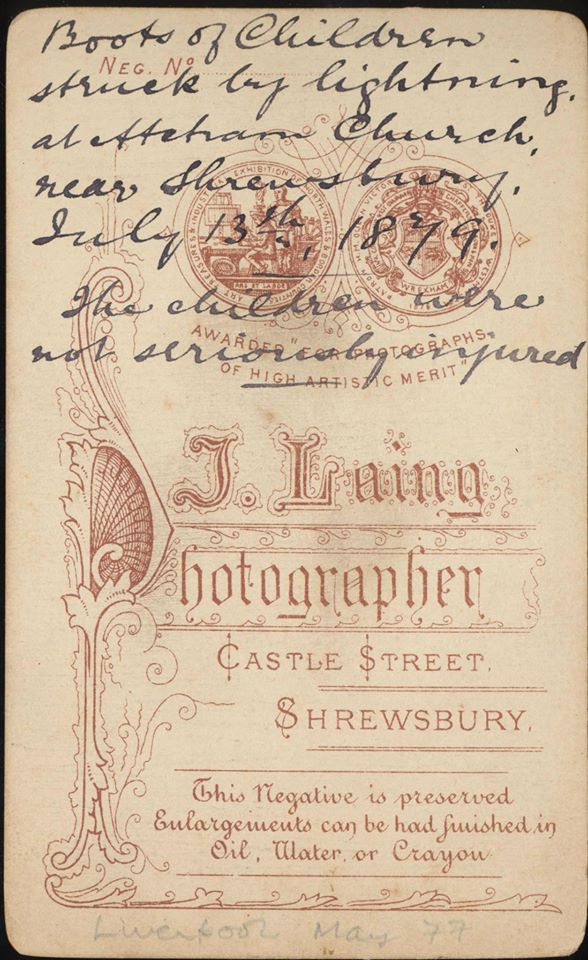 Boots of Children
NEG. No
struck by lightning.
at Atcham Church,
near Shrewsbury.
July 13th, 1879.
The children were
not seriously injured
ART TREASURES & INDUSTRIAL EXHIBITION OF NORTH WALES & BORDER COUNTIES
ARS ET LABOR
WREXHAM
AWARDED "FOR PHOTOGRAPHS
OF HIGH ARTISTIC MERIT"
J. Laing
Photographer
CASTLE STREET.
SHREWSBURY.
This Negative is preserved
Enlargements can be had finished in
Oil, Water, or Crayon
Liverpool May 77